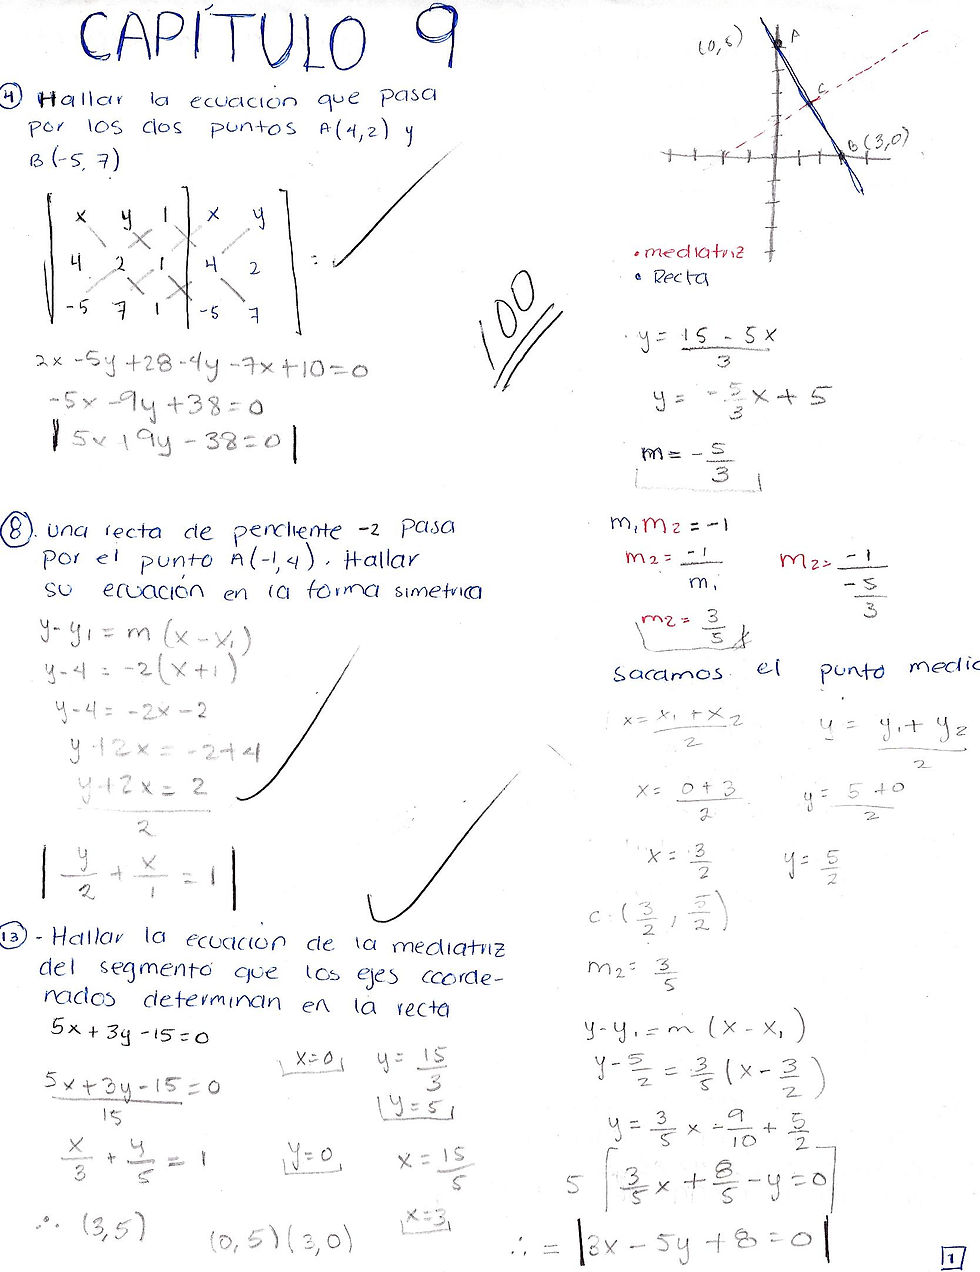 CAPÍTULO 9
4 Hallar la ecuación que pasa
por los dos puntos A(4,2) y
B(-5,7)
x y 1 x y
4 2 1 4 2 =
-5 7 1 -5 7
2x -5y +28 -4y -7x +10 = 0
-5x -9y +38 = 0
5x + 9y - 38 = 0
100
8. Una recta de pendiente -2 pasa
por el punto A(-1,4). Hallar
su ecuación en la forma simetrica
y-y1 = m (x-x1)
y-4 = -2(x+1)
y-4 = -2x-2
y+2x = -2+4
y+2x = 2
2
y/2 + x/1 = 1
13 - Hallar la ecuación de la mediatriz
del segmento que los ejes coorde-
nados determinan en la recta
5x + 3y - 15 = 0
5x + 3y - 15 = 0
15
x/3 + y/5 = 1
∴ (3,5)
x=0 y = 15/3
y=5
y=0 x = 15/5
x=3
(0,5)(3,0)
(0,5) A
C
B(3,0)
• mediatriz
• Recta
y = 15 - 5x
3
y = -5/3 x + 5
m = -5/3
m1 m2 = -1
m2 = -1/m1 m2 = -1/(-5/3)
m2 = 3/5
sacamos el punto medio
x = x1 + x2 / 2 y = y1 + y2 / 2
x = 0 + 3 / 2 y = 5 + 0 / 2
x = 3/2 y = 5/2
C: (3/2, 5/2)
m2 = 3/5
y-y1 = m (x - x1)
y - 5/2 = 3/5 (x - 3/2)
y = 3/5 x - 9/10 + 5/2
5 [3/5 x + 8/5 - y = 0]
∴ = 3x - 5y + 8 = 0
1